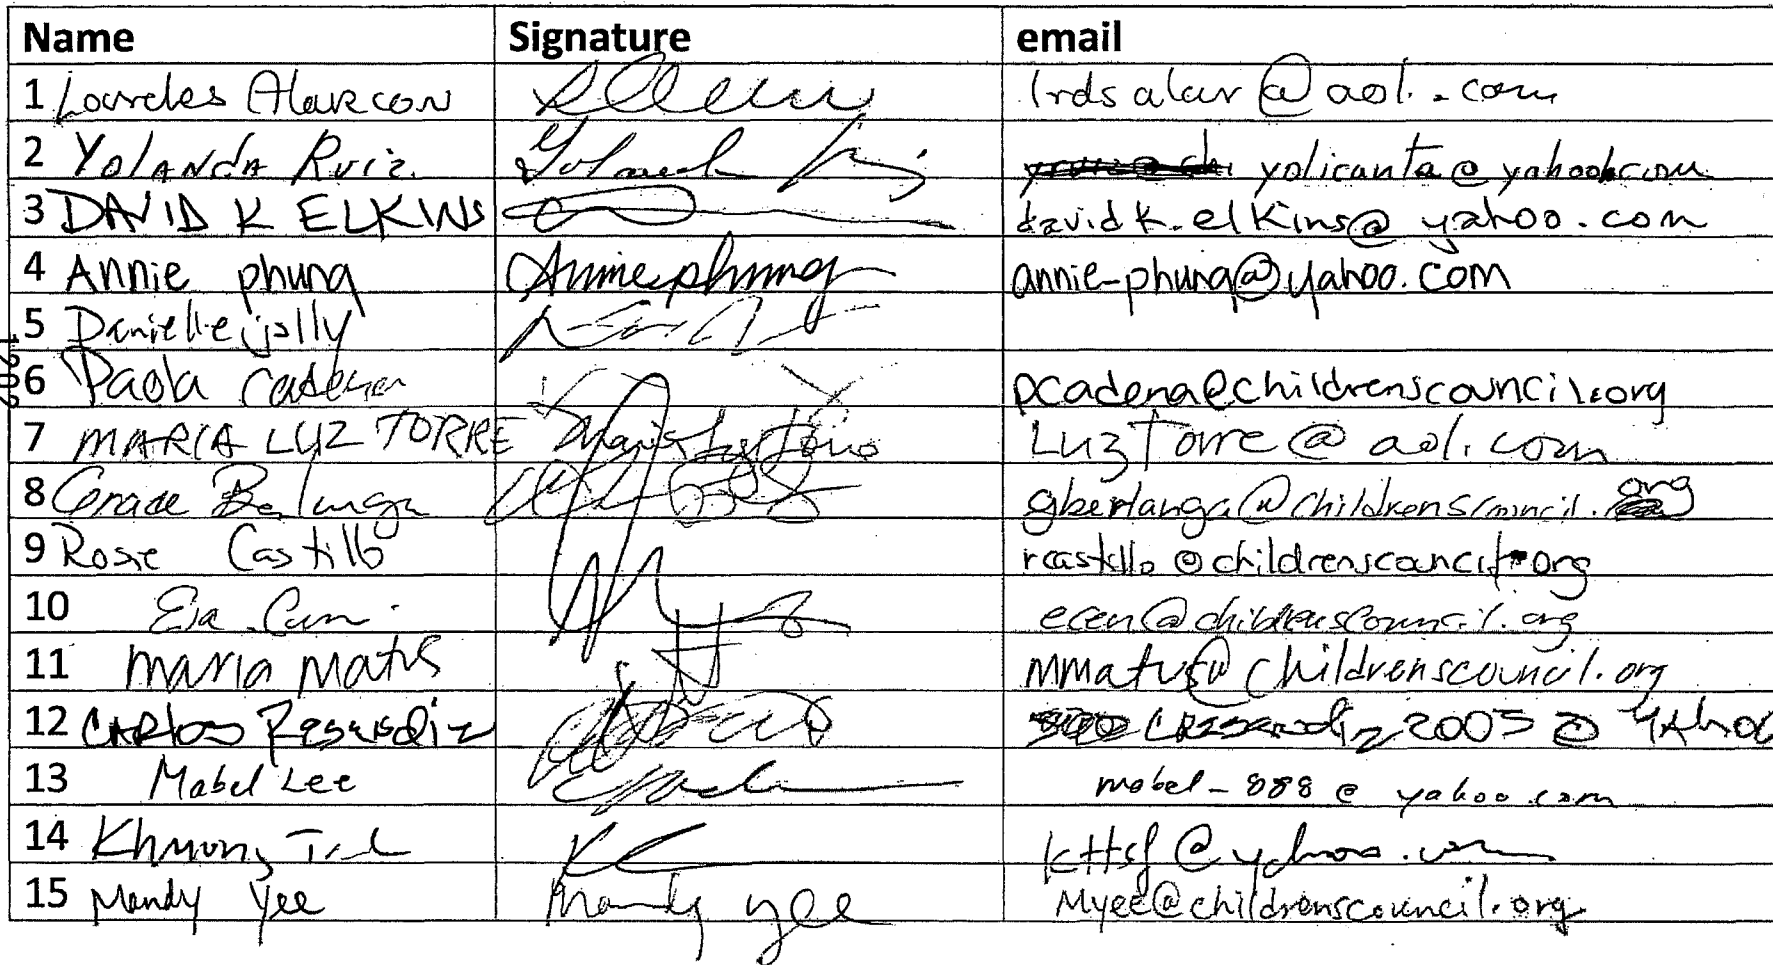 Name Signature email
1 Lourdes Alarcon lrdsalar@aol.com
2 Yolanda Ruiz yolicanta@yahoo.com
3 DAVID K ELKINS davidk.elkins@yahoo.com
4 Annie phung Annie phung annie_phung@yahoo.com
5 Danielle jolly
6 Paola Cadena pcadena@childrenscouncil.org
7 MARIA LUZ TORRE LuzTorre@aol.com
8 Grace Berlanga gberlanga@childrenscouncil.org
9 Rosie Castillo rcastillo@childrenscouncil.org
10 ecen@childrenscouncil.org
11 Maria Matus mmatus@childrenscouncil.org
12 CARlos Resendiz cresendiz2005@yahoo
13 Mabel Lee mabel_888@yahoo.com
14 Khuong kttsf@yahoo.com
15 Mandy Yee Mandy yee Myee@childrenscouncil.org